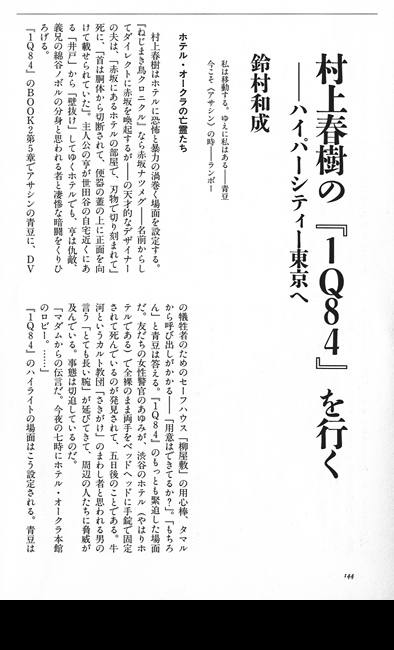 村上春樹の『1Q84』を行く
――ハイパーシティー東京へ
鈴村和成
私は移動する。ゆえに私はある――青豆
今こそ〈アサシン〉の時――ランボー
ホテル・オークラの亡霊たち
村上春樹はホテルに恐怖と暴力の渦巻く場面を設定する。
『ねじまき鳥クロニクル』なら赤坂ナツメグ――名前からし
てダイレクトに赤坂を喚起するが――の天才的なデザイナー
の夫は、「赤坂にあるホテルの部屋で、刃物で切り刻まれて」
死に、「首は胴体から切断されて、便器の蓋の上に正面を向
けて載せられていた」。主人公の亨が世田谷の自宅近くにあ
る「井戸」から「壁抜け」してゆくホテルでも、亨は仇敵、
義兄の綿谷ノボルの分身と思われる者と凄惨な暗闘をくりひ
ろげる。
『1Q84』のBOOK2第5章でアサシンの青豆に、DV
の犠牲者のためのセーフハウス「柳屋敷」の用心棒、タマル
から呼び出しがかかる――「用意はできてるか？」。「もちろ
ん」と青豆は答える。『1Q84』のもっとも緊迫した場面
だ。友だちの女性警官のあゆみが、渋谷のホテル（やはりホ
テルである）で全裸のまま両手をベッドヘッドに手錠で固定
されて死んでいるのが発見されて、五日後のことである。牛
河というカルト教団「さきがけ」のまわし者と思われる男の
言う「とても長い腕」が延びてきて、周辺の人たちに脅威が
及んでいる。事態は切迫しているのだ。
「マダムからの伝言だ。今夜の七時にホテル・オークラ本館
のロビー。……」
『1Q84』のハイライトの場面はこう設定される。青豆は
144